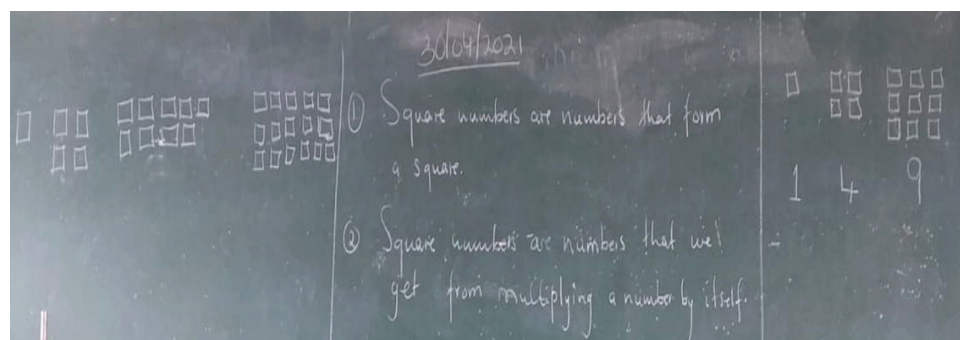 30/04/2021
① Square numbers are numbers that form
a square.
② Square numbers are numbers that we
get from multiplying a number by itself.
1 4 9